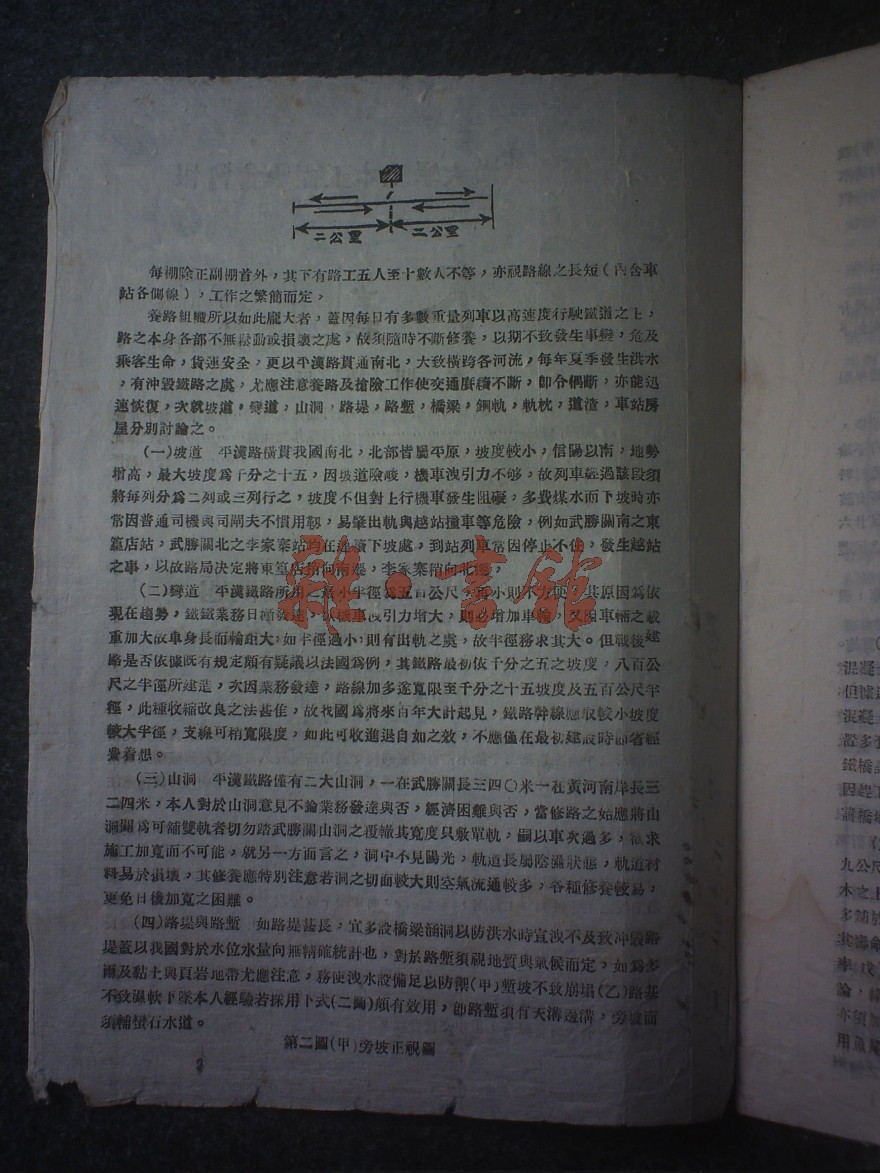 二公里 二公里
每棚除正副棚首外，其下有路工五人至十數人不等，亦視路線之長短（內含車
站各側線），工作之繁簡而定，
養路組織所以如此龐大者，蓋因每日有多數重量列車以高速度行駛鐵道之上，
路之本身各部不無鬆動或損壞之處，故須隨時不斷修養，以期不致發生事變，危及
乘客生命，貨運安全，更以平漢路貫通南北，大致橫跨各河流，每年夏季發生洪水
，有沖毀鐵路之處，尤應注意養路及搶險工作使交通賡續不斷，卽令偶斷，亦能迅
速恢復，次就坡道，彎道，山洞，路堤，路塹，橋梁，鋼軌，軌枕，道渣，車站房
屋分別討論之。
(一)坡道　平漢路橫貫我國南北，北部皆屬平原，坡度較小，信陽以南，地勢
增高，最大坡度爲千分之十五，因坡道險峻，機車洩引力不够，故列車經過該段須
將每列分爲二列或三列行之，坡度不但對上行機車發生阻礙，多費煤水而下坡時亦
常因普通司機與司閘夫不慣用軔，易肇出軌與越站撞車等危險，例如武勝關南之東
篁店站，武勝關北之李家寨站均在連續下坡處，到站列車常因停止不住，發生越站
之事，以故路局決定將東篁店稍向南，李家寨稍向北
(二)彎道　平漢鐵路所用 最小半徑爲五百公尺，小則不方便，其原因爲依
現在趨勢，鐵鐵業務日漸發達，機車洩引力增大，則必增加車輪，又因車輛之載
重加大故車身長而輪距大，如半徑過小，則有出軌之處，故半徑務求其大。但戰後建
路是否依據既有規定頗有疑議以法國爲例，其鐵路最初依千分之五之坡度，八百公
尺之半徑所建造，次因業務發達，路線加多遂寬限至千分之十五坡度及五百公尺半
徑，此種收縮改良之法甚佳，故我國爲將來百年大計起見，鐵路幹線應取較小坡度
較大半徑，支線可稍寬限度，如此可收進退自如之效，不應僅在最初建設時節省經
費着想。
(三)山洞　平漢鐵路僅有二大山洞，一在武勝關長三四〇米一在黃河南岸長三
二四米，本人對於山洞意見不論業務發達與否，經濟困難與否，當修路之始應將山
洞闢爲可舖雙軌者切勿踏武勝關山洞之覆轍其寬度只敷單軌，嗣以車次過多，欲求
施工加寬而不可能，就另一方面言之，洞中不見陽光，軌道長屬陰濕狀態，軌道材
料易於損壞，其修養應特別注意若洞之切面較大則空氣流通較多，各種修養較易，
更免日後加寬之困難。
(四)路堤與路塹　如路堤甚長，宜多設橋梁涵洞以防洪水時宣洩不及致沖毀路
堤蓋以我國對於水位水量向無精確統計也，對於路塹須視地質與氣候而定，如爲多
雨及黏土與頁岩地帶尤應注意，務使洩水設備足以防禦(甲)塹坡不致崩塌(乙)路基
不致濕軟下墜本人經驗若採用下式(二圖)頗有效用，卽路塹須有天溝邊溝，旁坡面
須輔蠻石水道。
第二圖(甲)旁坡正視圖
雜·書館